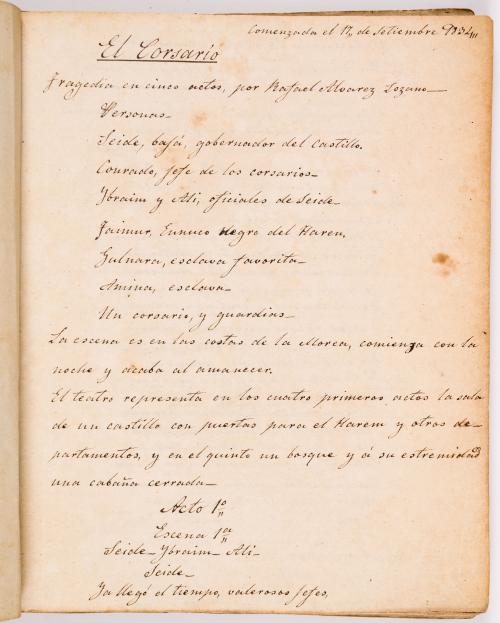 Comenzada el 17,, de Setiembre 1834,,,
El Corsario
Tragedia en cinco actos, por Rafael Alvarez Lozano—
Personas—
Seide, bajá, gobernador del Castillo.
Conrado, jefe de los corsarios—
Ybraim y Ali, oficiales de Seide—
Jaimur, Eunuco negro del Harem.
Gulnara, esclava favorita—
Amina, esclava—
Un corsario, y guardias—
La escena es en las costas de la Morea, comienza con la
noche y acaba al amanecer.
El teatro representa en los cuatro primeros actos la sala
de un castillo con puertas para el Harem y otros de-
partamentos, y en el quinto un bosque y á su estremidad
una cabaña cerrada—
Acto 1º
Escena 1ª
Seide— Ybraim— Ali—
Seide—
Ya llegó el tiempo, valerosos jefes,